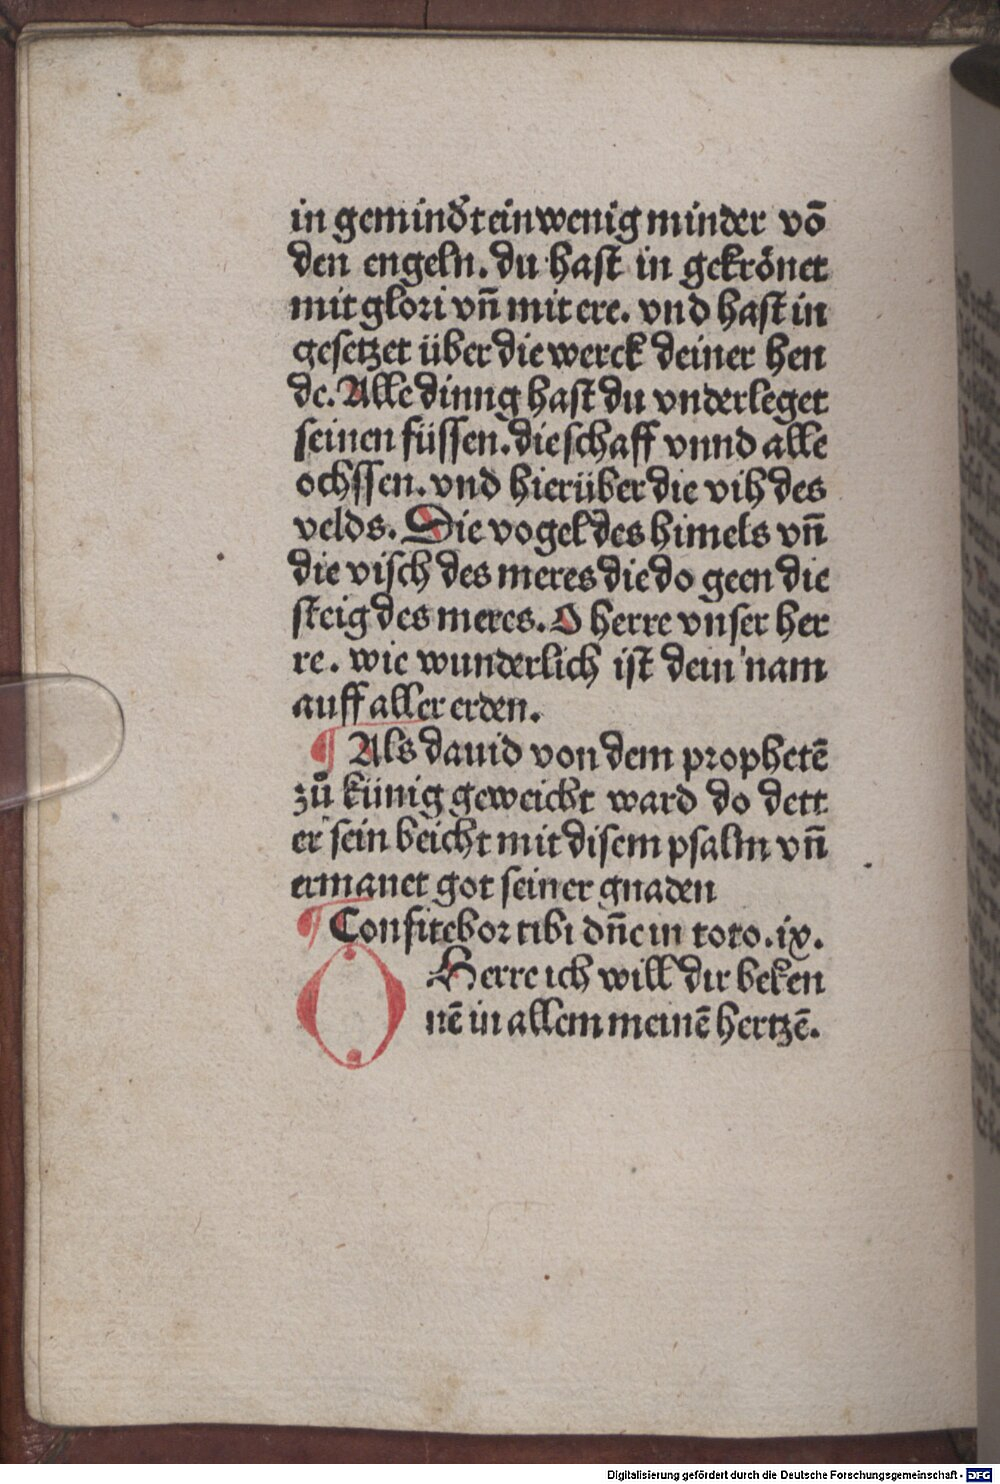 in geminďt ein wenig minder võ
den engeln. du hast in gekrönet
mit glori vñ mit ere. vnd hast in
gesetzet über die werck deiner hen
de. Alle dinng hast du vnderleget
seinen füssen. die schaff vnnd alle
ochssen. vnd hierüber die vih des
velds. Die vogel des himels vñ
die visch des meres die do geen die
steig des meres. O herre vnser her
re. wie wunderlich ist dein nam
auff aller erden.
¶ Als dauid von dem prophetē
zů künig geweicht ward do dett
er sein beicht mit disem psalm vñ
ermanet got seiner gnaden
¶ Confitebor tibi dñe in toto. ix.
O Herre ich will dir beken
nē in allem meinē hertzē.
Digitalisierung gefördert durch die Deutsche Forschungsgemeinschaft - DFG